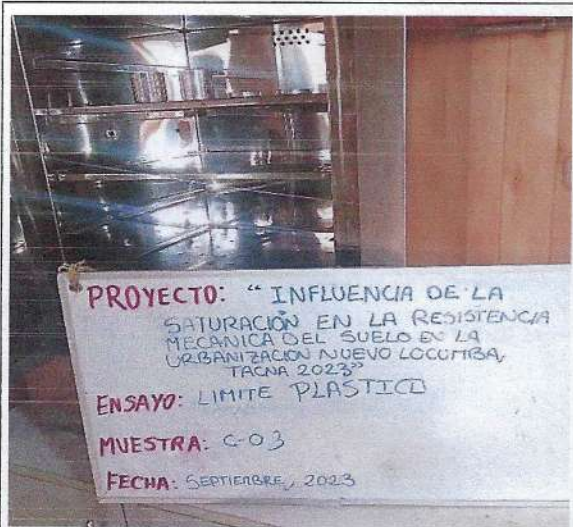 PROYECTO: "INFLUENCIA DE LA
SATURACIÓN EN LA RESISTENCIA
MECANICA DEL SUELO EN LA
URBANIZACION NUEVO LOCUMBA,
TACNA 2023"
ENSAYO: LIMITE PLASTICO
MUESTRA: C-03
FECHA: SEPTIEMBRE, 2023